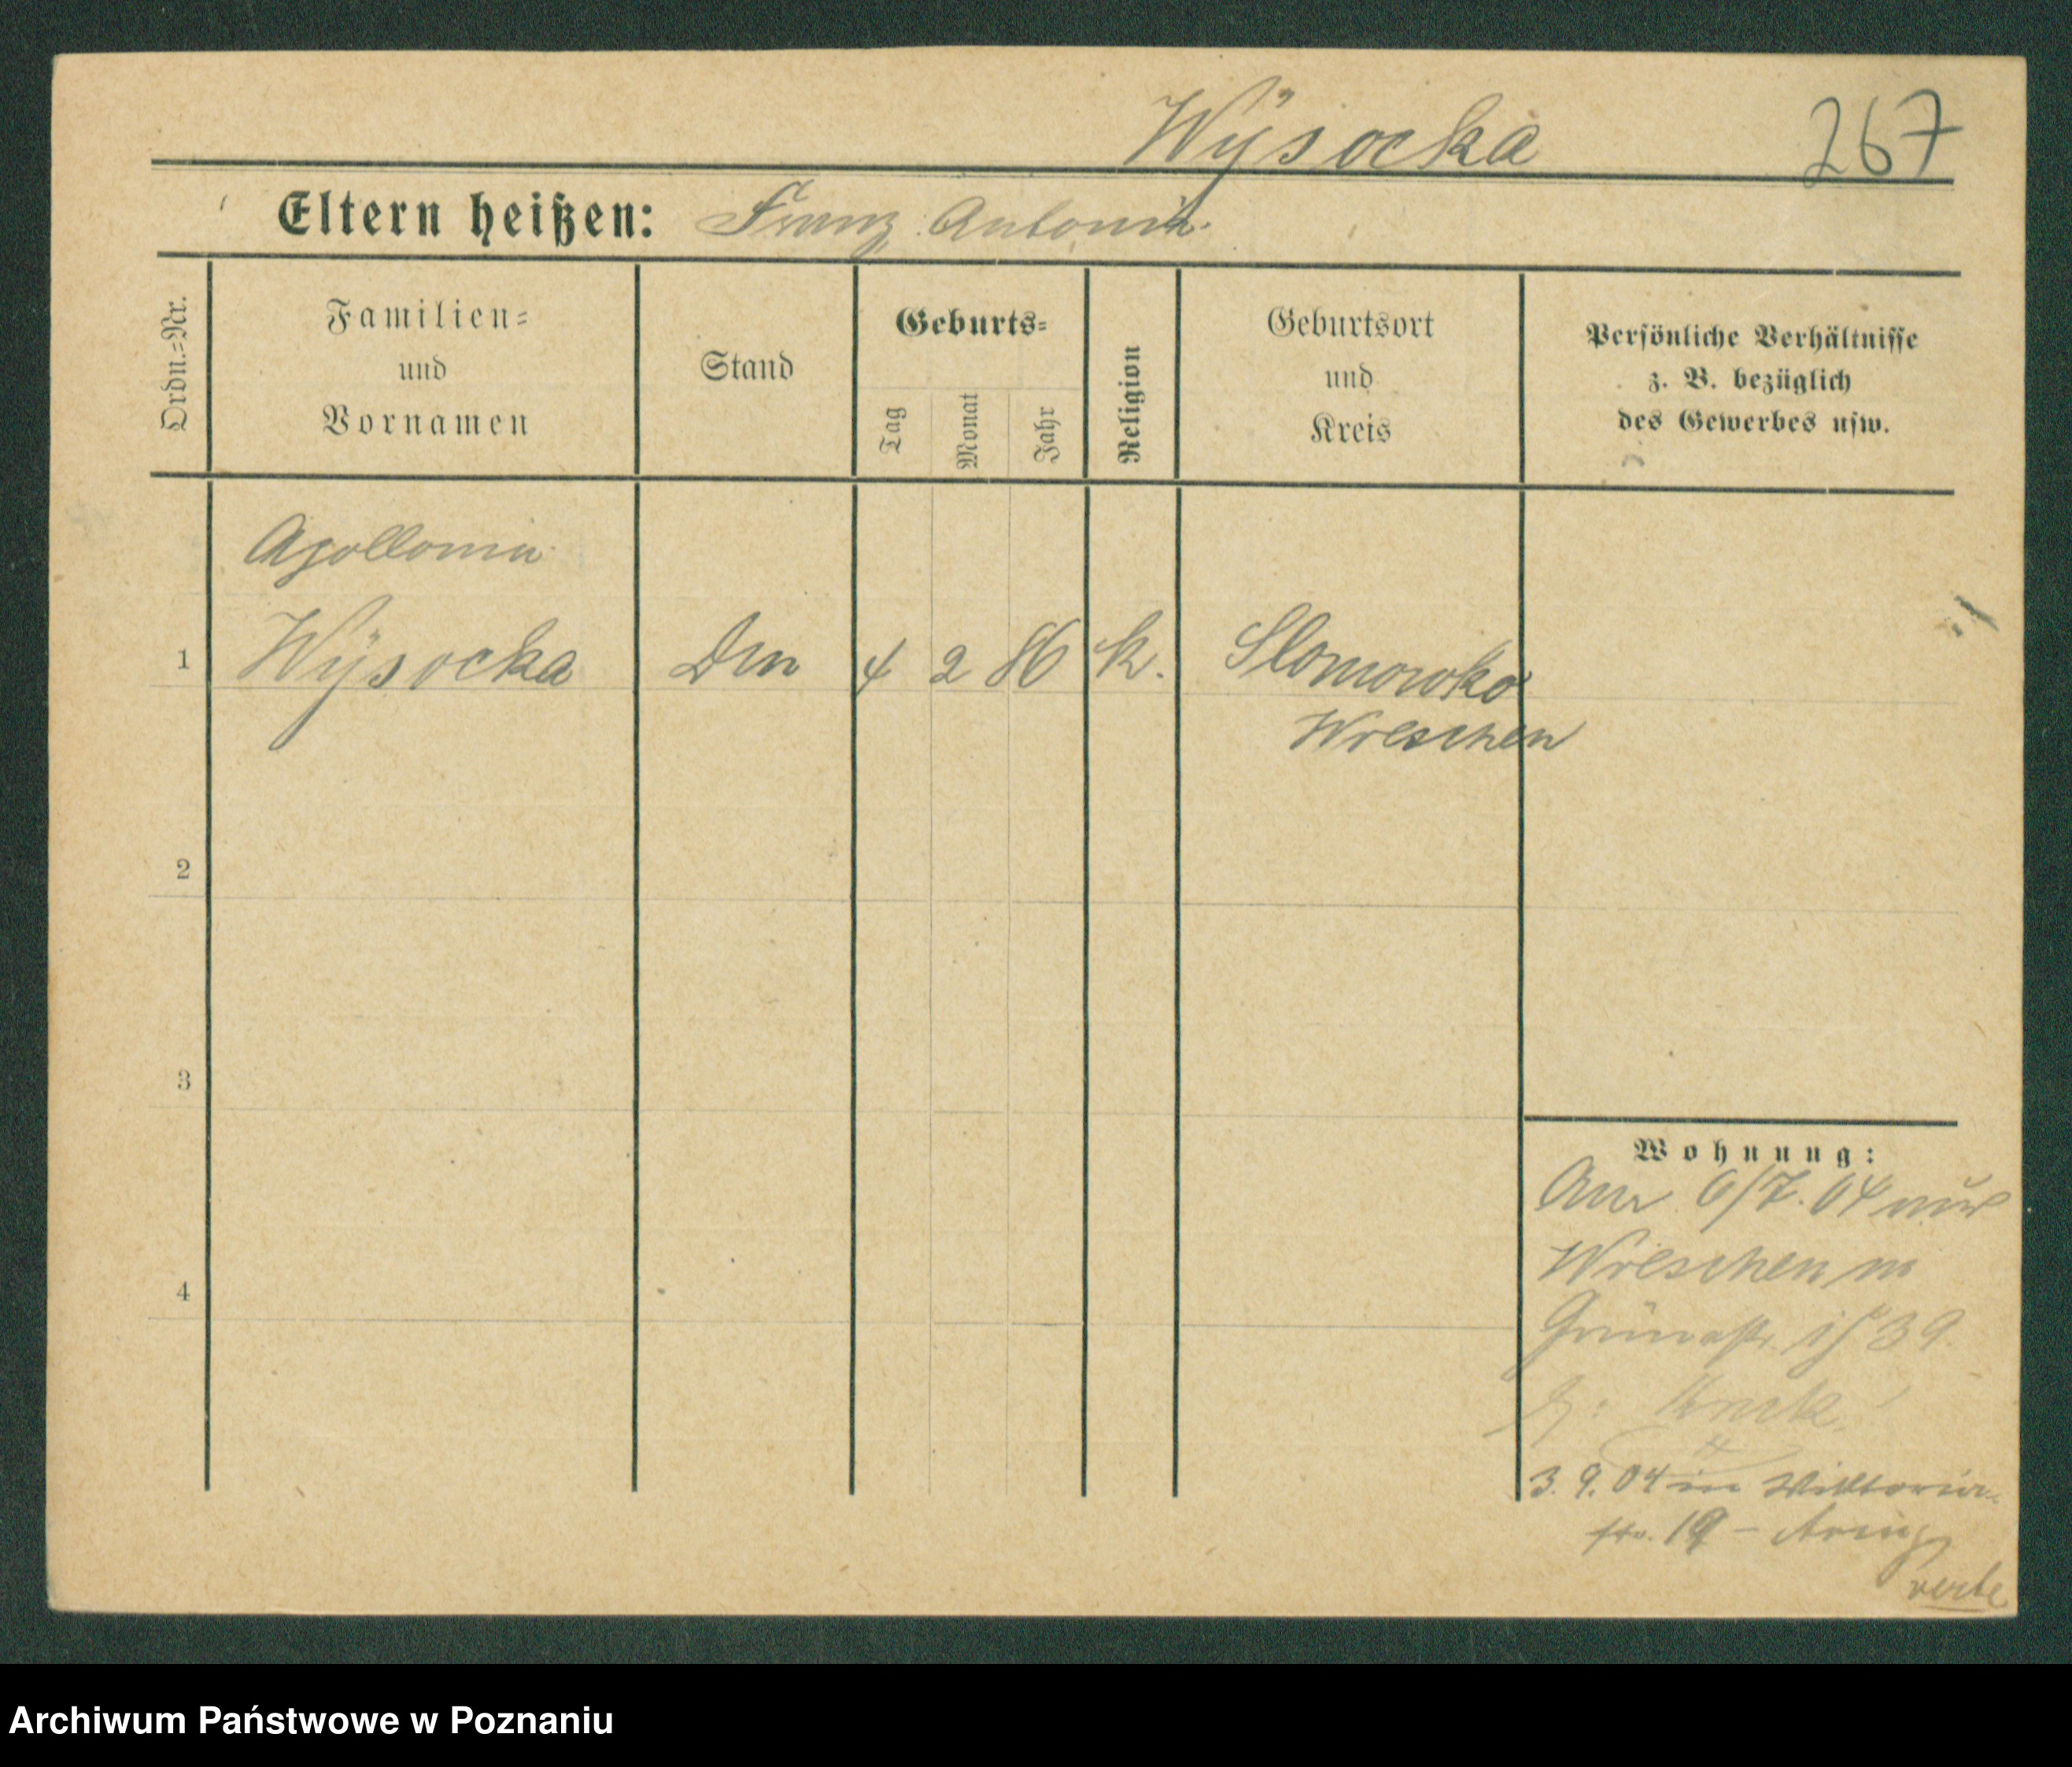 Wysocka 267
Eltern heißen: Franz Antonia
Ordn.=Nr.
Familien=
und
Vornamen
Stand
Geburts=
Tag
Monat
Jahr
Religion
Geburtsort
und
Kreis
Persönliche Verhältnisse
z. B. bezüglich
des Gewerbes usw.
Apollonia
1 Wysocka 4 2 86 k. Slomowko
Wreschen
2
3
4
Wohnung:
6/7. 04 aus
Wreschen in
39.
3. 9. 04 in Viktoria-
str. 19 -
verte
Archiwum Państwowe w Poznaniu